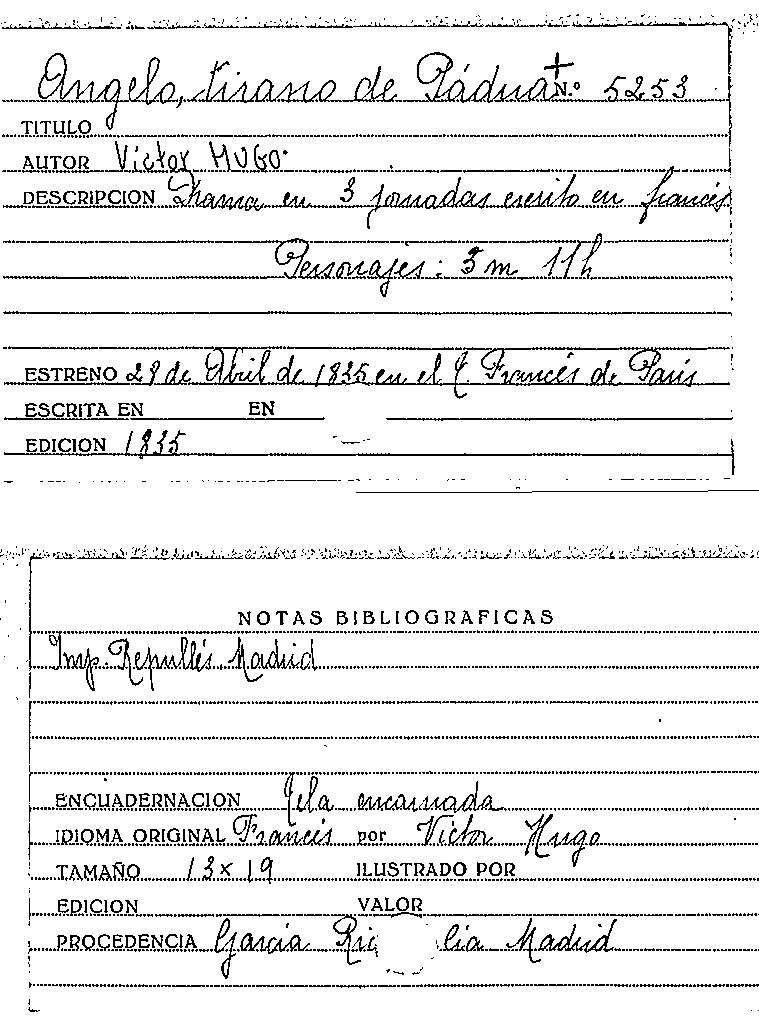 Angelo, tirano de Pádua N.º 5253
TITULO
AUTOR Victor HUGO.
DESCRIPCION Drama en 3 jornadas escrito en francés
Personajes: 3 m 11 h
ESTRENO 28 de Abril de 1835 en el T. Francés de Paris
ESCRITA EN EN
EDICION 1835
NOTAS BIBLIOGRAFICAS
Imp. Repullés. Madrid
ENCUADERNACION Tela encarnada
IDIOMA ORIGINAL Francés por Victor Hugo
TAMAÑO 13 x 19 ILUSTRADO POR
EDICION VALOR
PROCEDENCIA García Ric lia Madrid